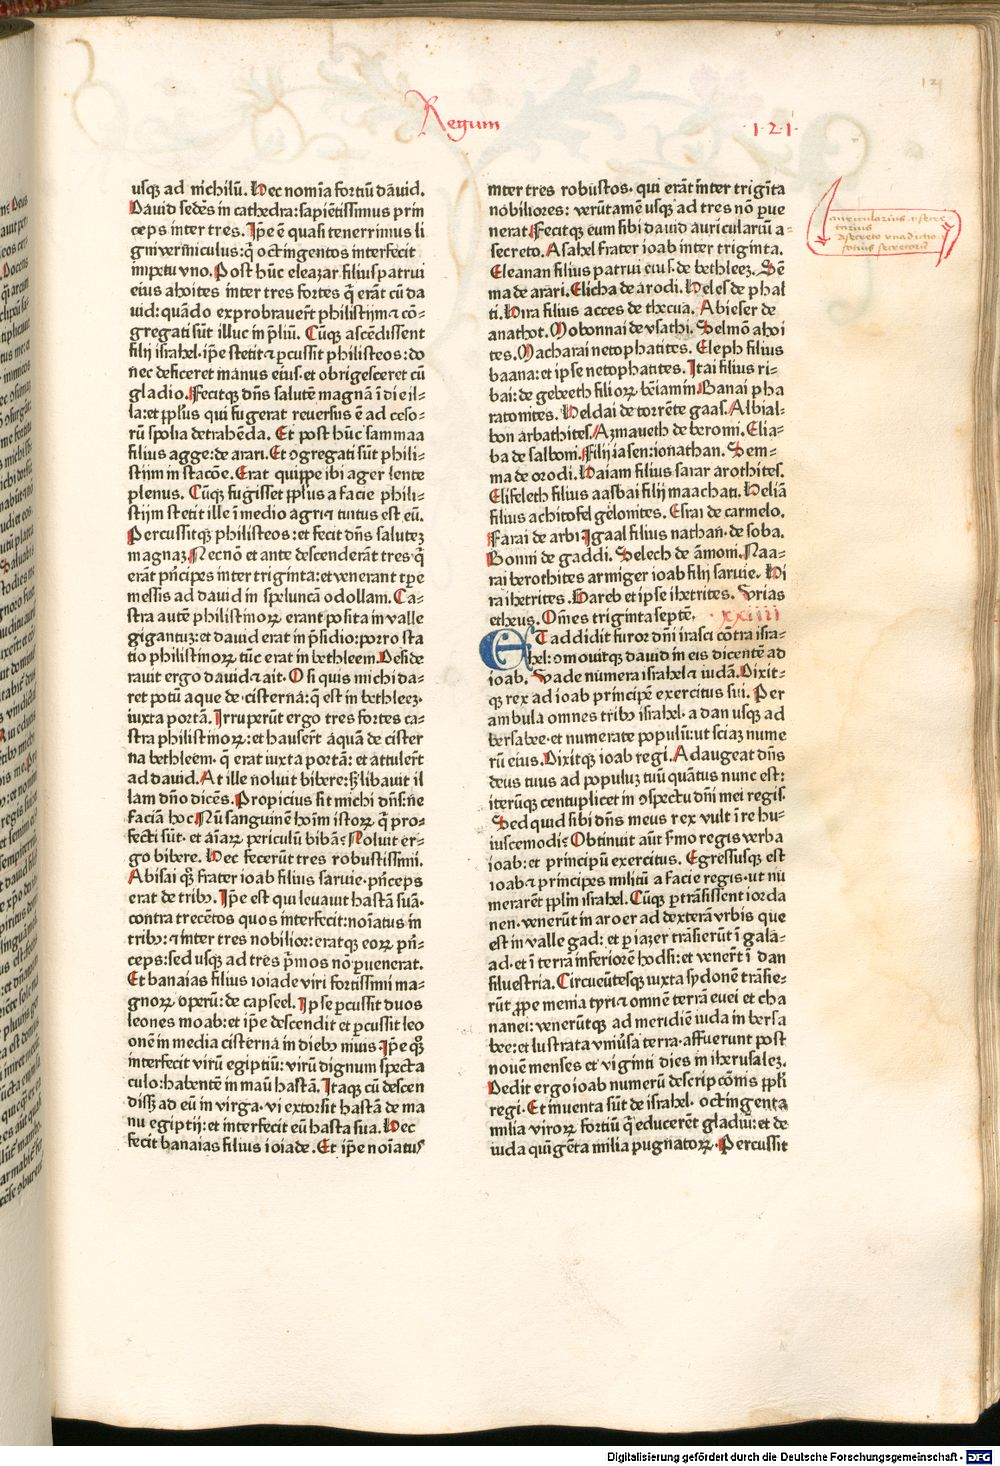 Regum
·1·2·1·
121
usqꝫ ad nichilū. Hec nomīa fortiū dauid.
Dauid sedēs in cathedra: sapiētissimus prin
ceps inter tres. Ip̄e ē quasi tenerrimus li
gni vermiculus: q̄ octingentos interfecit
impetu vno. Post hūc eleazar filius patrui
eius ahoites inter tres fortes q̄ erāt cū da
uid: quādo exprobrauer̄t philistijm ⁊ cō-
gregati sūt illuc in p̄liū. Cūqꝫ ascēdissent
filij israhel. ip̄e stetit ⁊ ꝑcussit philisteos: do
nec deficeret manus eius. et obrigesceret cū
gladio. Fecitqꝫ dn̄s salutē magnā ī die il-
la: et ppl̄us qui fugerat reuersus ē ad ceso-
rū spolia detrahēda. Et post hūc sammaa
filius agge: de arari. Et ꝯgregati sūt phili-
stijm in stacōe. Erat quippe ibi ager lente
plenus. Cūqꝫ fugisset ppl̄us a facie phili-
stijm stetit ille ī medio agri ⁊ tuitus est eū.
Percussitqꝫ philisteos: et fecit dn̄s salutez
magnaꝫ. Necnō et ante descenderāt tres q̄
erāt pn̄cipes inter triginta: et venerant tp̄e
messis ad dauid in speluncā odollam. Ca-
stra autē philistinoꝝ erant posita in valle
gigantuꝫ: et dauid erat in p̄sidio: porro sta
tio philistinoꝝ tūc erat in bethleem. Deside
rauit ergo dauid ⁊ ait. O si quis michi da-
ret potū aque de cisterna: q̄ est in bethleeꝫ
iuxta portā. Irruperūt ergo tres fortes ca-
stra philistinoꝝ: et hauser̄t aquā de cister
na bethleem. q̄ erat iuxta portā: et attuler̄t
ad dauid. At ille noluit bibere: sꝫ libauit il
lam dn̄o dicēs. Propicius sit michi dn̄s: ne
faciā hoc. Nū sanguinē hoīm istoꝝ q̄ pro-
fecti sūt. et aīaꝝ periculū bibā: Noluit er-
go bibere. Hec fecerūt tres robustissimi.
Abisai qꝫ frater ioab filius saruie. pn̄ceps
erat de tribꝫ. Ip̄e est qui leuauit hastā suā.
contra trecētos quos interfecit: noīatus in
tribꝫ: ⁊ inter tres nobilior: eratqꝫ eoꝝ pn̄-
ceps: sed usqꝫ ad tres p̄mos nō ꝑuenerat.
Et banaias filius ioiade viri fortissimi ma-
gnoꝝ operū: de capseel. Ipse ꝑcussit duos
leones moab: et ip̄e descendit et ꝑcussit leo
onē in media cisterna in diebꝫ niuis. Ip̄e qꝫ
interfecit virū egiptiū: virū dignum specta
culo: habentē in manu hastā. Itaqꝫ cū descen
dissꝫ ad eū in virga. vi extorsit hastā de ma
nu egiptij: et interfecit eū hasta sua. Hec
fecit banaias filius ioiade. Et ip̄e noīatus
inter tres robustos. qui erāt inter trigīta
nobiliores: verūtamē usqꝫ ad tres nō ꝑue
nerat. Fecitqꝫ eum sibi dauid auriculariū a-
secreto. Asahel frater ioab inter triginta.
Eleanan filius patrui eius de bethleeꝫ. Sē
ma de arari. Elicha de arodi. Heles de phal
ti. Hira filius acces de thecua. Abieser de
anathot. Mobonnai de vsathi. Selmō ahoi
tes. Macharai netophatites. Eleph filius
baana: et ipse netophatites. Itai filius ri-
bai: de gebeeth filioꝝ beniamin. Banai pha
ratonites. Heldai de torrēte gaas. Albial-
bon arbathites. Azmaueth de beromi. Elia-
ba de salboni. Filij iasen: ionathan. Sem-
ma de orodi. Haiam filius sarar arothites.
Elifeleth filius aasbai filij maachati. Heliā
filius achitofel gelonites. Esrai de carmelo.
Farai de arbi. Igaal filius nathan. de soba.
Bonni de gaddi. Selech de āmoni. Naa-
rai berothites armiger ioab filij saruie. Hi
ra ihetrites. Hareb et ipse ihetrites. Vrias
etheus. Om̄es triginta septē. xxiiii
ET addidit furor dn̄i irasci cōtra isra-
hel: ꝯmouitqꝫ dauid in eis dicentē ad
ioab. Vade numera israhel ⁊ iudā. Dixit-
qꝫ rex ad ioab principē exercitus sui. Per
ambula omnes tribꝫ israhel. a dan usqꝫ ad
bersabee. et numerate populū: ut sciaꝫ nume
rū eius. Dixitqꝫ ioab regi. Adaugeat dn̄s
deus tuus ad populuꝫ tuū quātus nunc est:
iterūqꝫ centuplicet in ꝯspectu dn̄i mei regis.
Sed quid sibi dn̄s meus rex vult ī re hu-
iuscemodi: Obtinuit aūt sermo regis verba
ioab: et principū exercitus. Egressusqꝫ est
ioab ⁊ principes militū a facie regis. ut nu
merarēt ppl̄m israhel. Cūqꝫ ꝑtrāsissent iorda
nen. venerūt in aroer ad dexterā vrbis que
est in valle gad: et ꝑ iazer trāsierūt ī gala-
ad. et ī terrā inferiorē hodsi: et vener̄t ī dan
siluestria. Circueūtesqꝫ iuxta sydonē trāsie-
rūt ꝓpe menia tyri ⁊ omnē terrā euei et cha
nanei: venerūtqꝫ ad meridiē iuda in bersa
bee: et lustrata vniūsa terra. affuerunt post
nouē menses et viginti dies in iherusaleꝫ.
Dedit ergo ioab numerū descripcōnis ppl̄i
regi. Et inuenta sūt de israhel. octingenta
milia viroꝝ fortiū q̄ educerēt gladiū: et de
iuda quīgēta milia pugnatoꝝ. Percussit
auricularius. i. secre
tarius
Digitalisierung gefördert durch die Deutsche Forschungsgemeinschaft - DFG